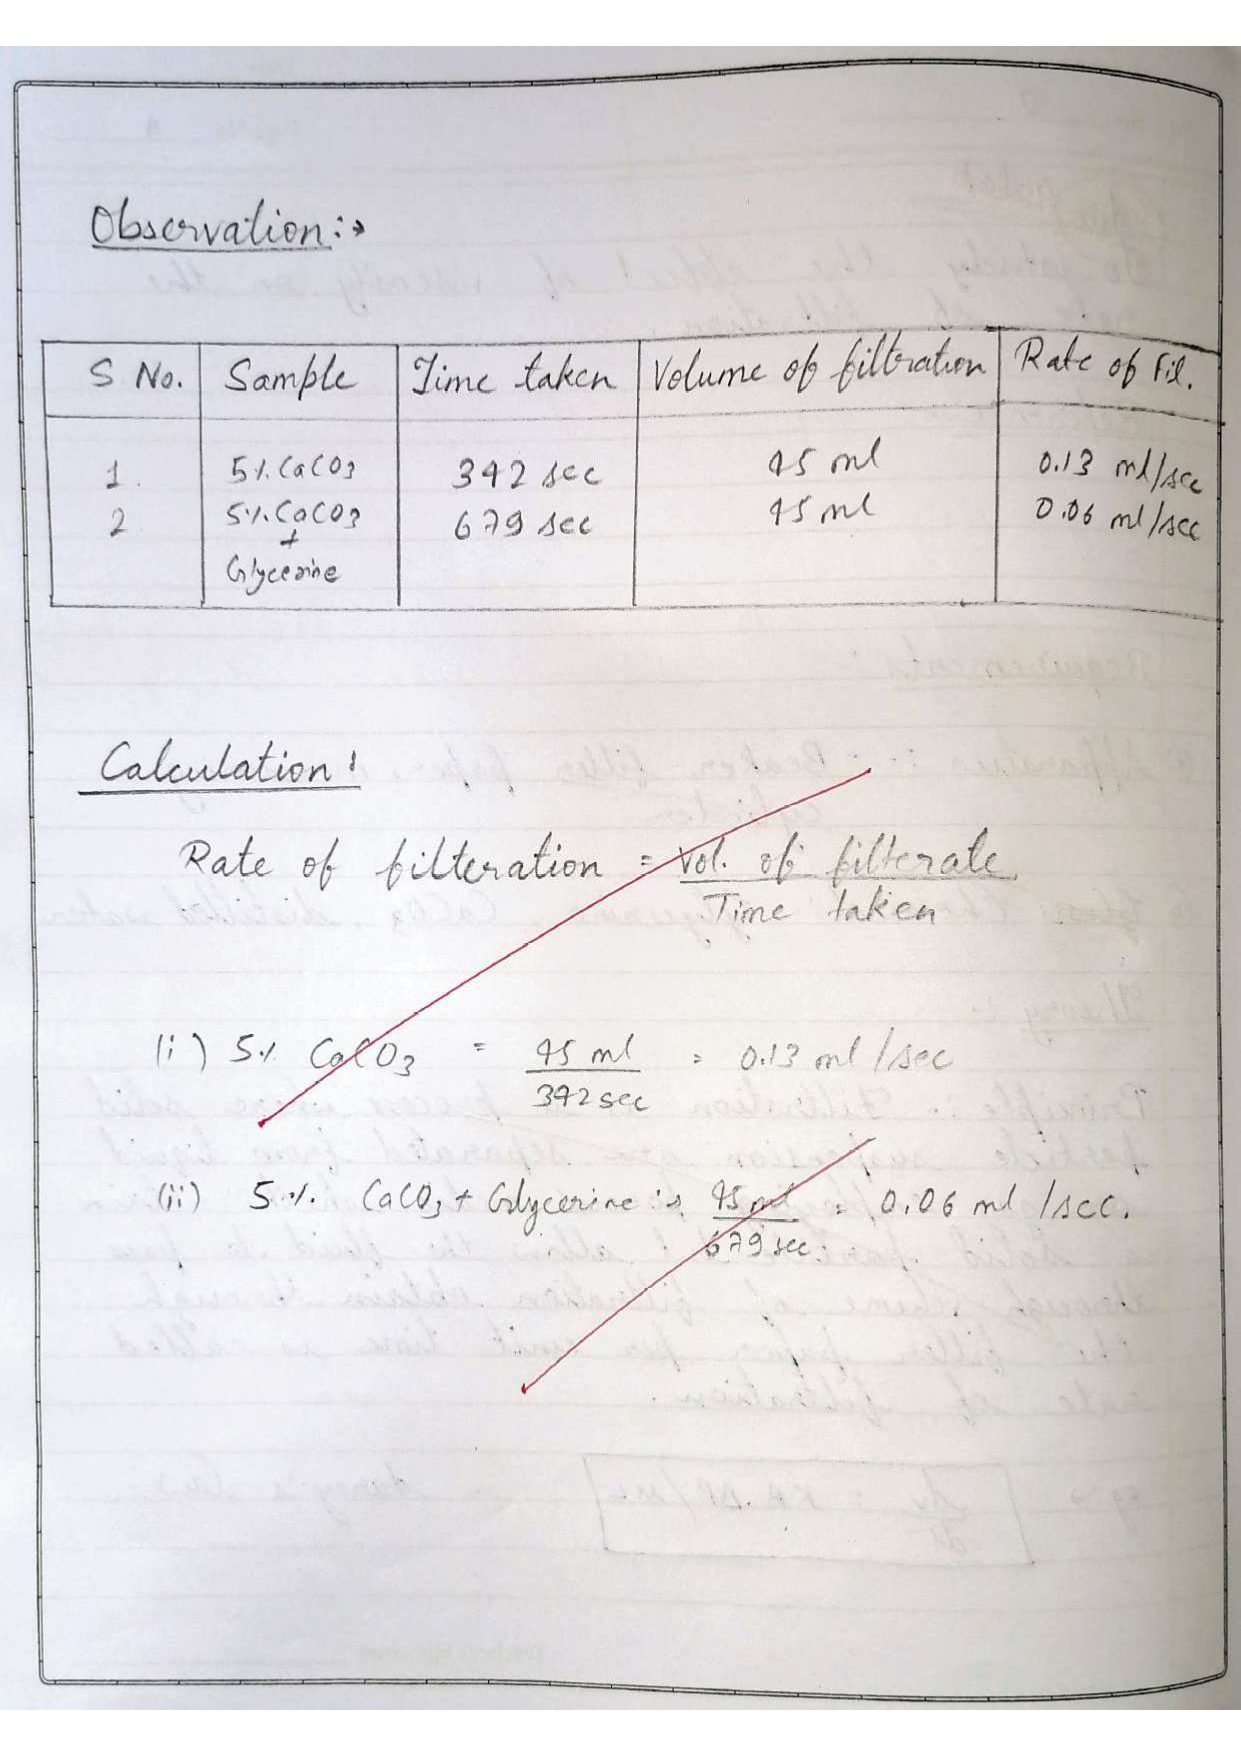 Observation:→
S No. Sample Time taken Volume of filtration Rate of Fil.
1. 5% CaCO3 342 sec 45 ml 0.13 ml/sec
2 5% CaCO3 679 sec 45 ml 0.06 ml/sec
+
Glycerine
Calculation:
Rate of filteration = Vol. of filterate
Time taken
(i) 5% CaCO3 = 45 ml = 0.13 ml/sec
342 sec
(ii) 5% CaCO3 + Glycerine :→ 45 ml = 0.06 ml/sec.
679 sec.